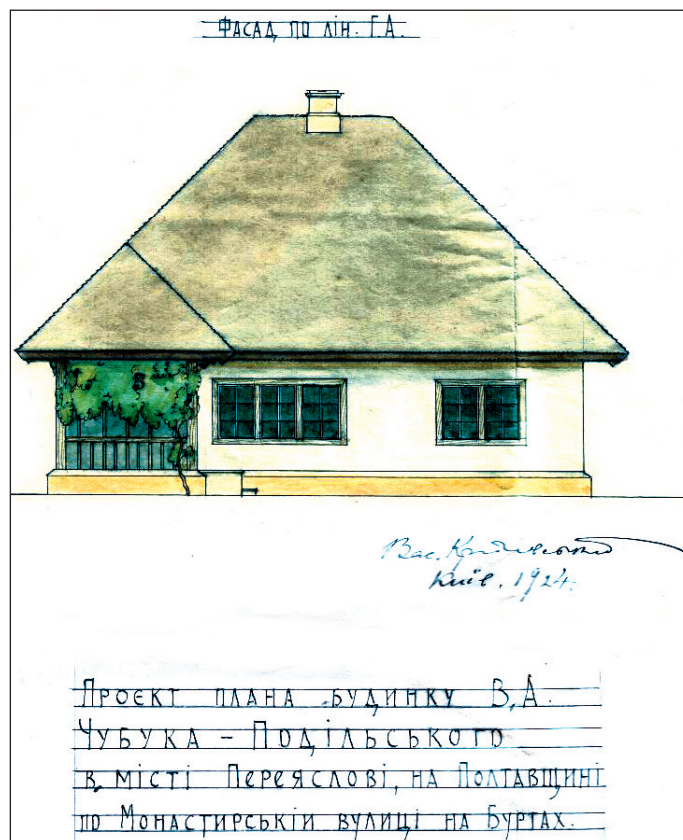 Фасад по лін. Г.А.
Вас. Кричевський
Київ. 1924.
Проєкт плана будинку В.А.
Чубука – Подільського
в місті Переяслові, на Полтавщині
по Монастирській вулиці на Буртах.